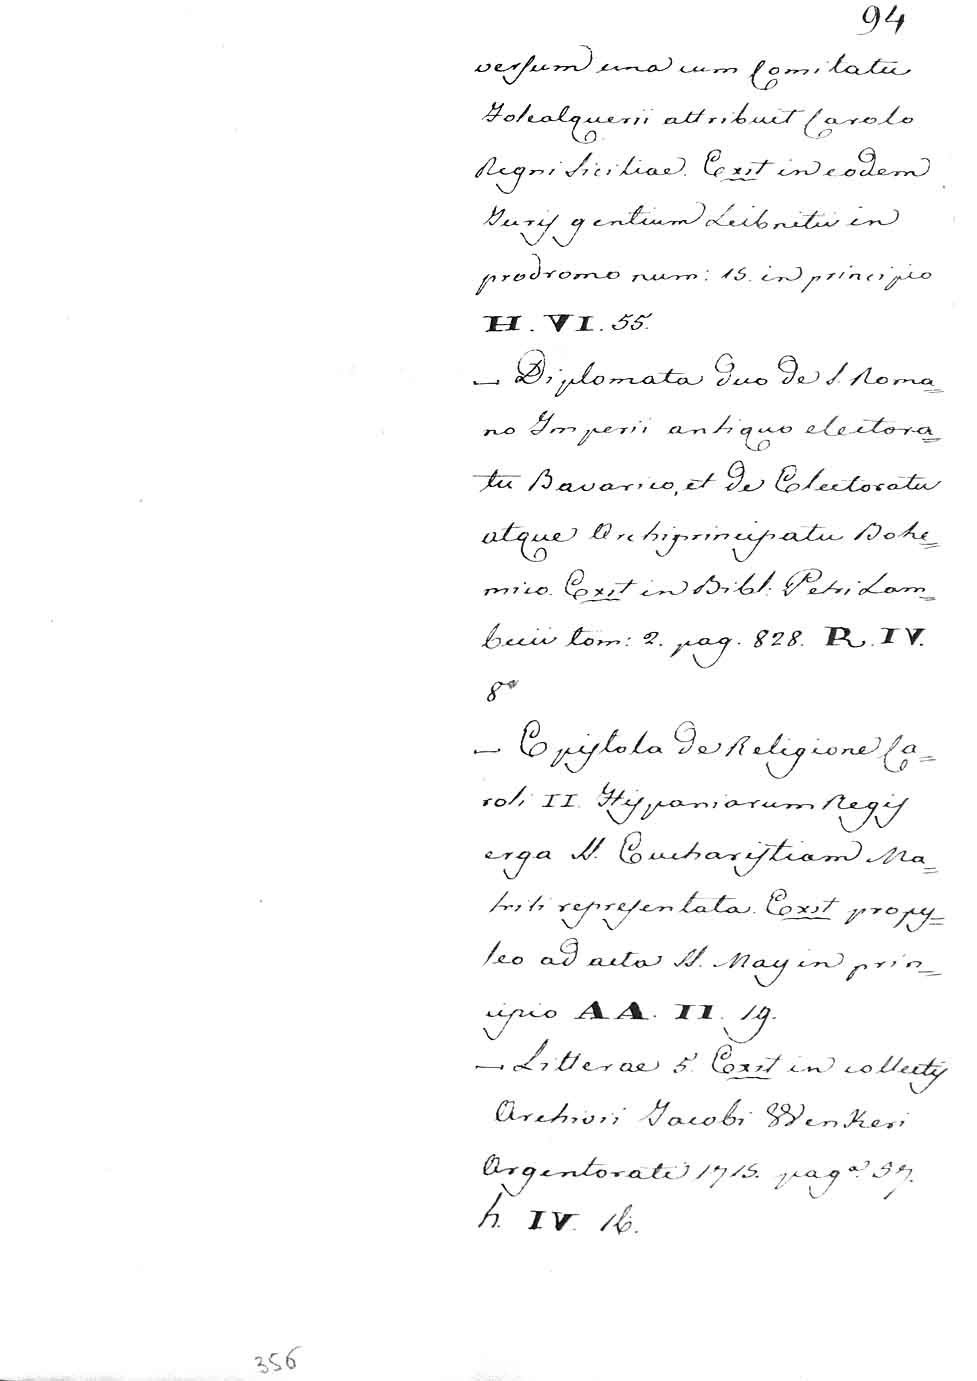 94
versum una cum Comitatu
Folcalquerii attribuit Carolo
Regni Siciliae. Exst in eodem
Juris gentium Leibnitii in
prodromo num: 15. in principio
H. VI. 55.
— Diplomata duo de S. Roma=
no Imperii antiquo electora=
tu Bavarico, et de Electoratu
atque Archiprincipatu Bohe=
mico. Exst in Bibl: Petri Lam=
becii tom: 2. pag. 828. R. IV.
8º
— Epistola de Religione Ca=
roli II. Hispaniarum Regis
erga SS. Eucharistiam Ma=
triti repræsentata. Exst propy=
leo ad acta SS. May in prin=
cipio AA. II. 19.
— Litterae 5. Exst in collectis
Archivii Jacobi Wenkeri
Argentorati 1715. pagª. 57.
h. IV. 16.
356